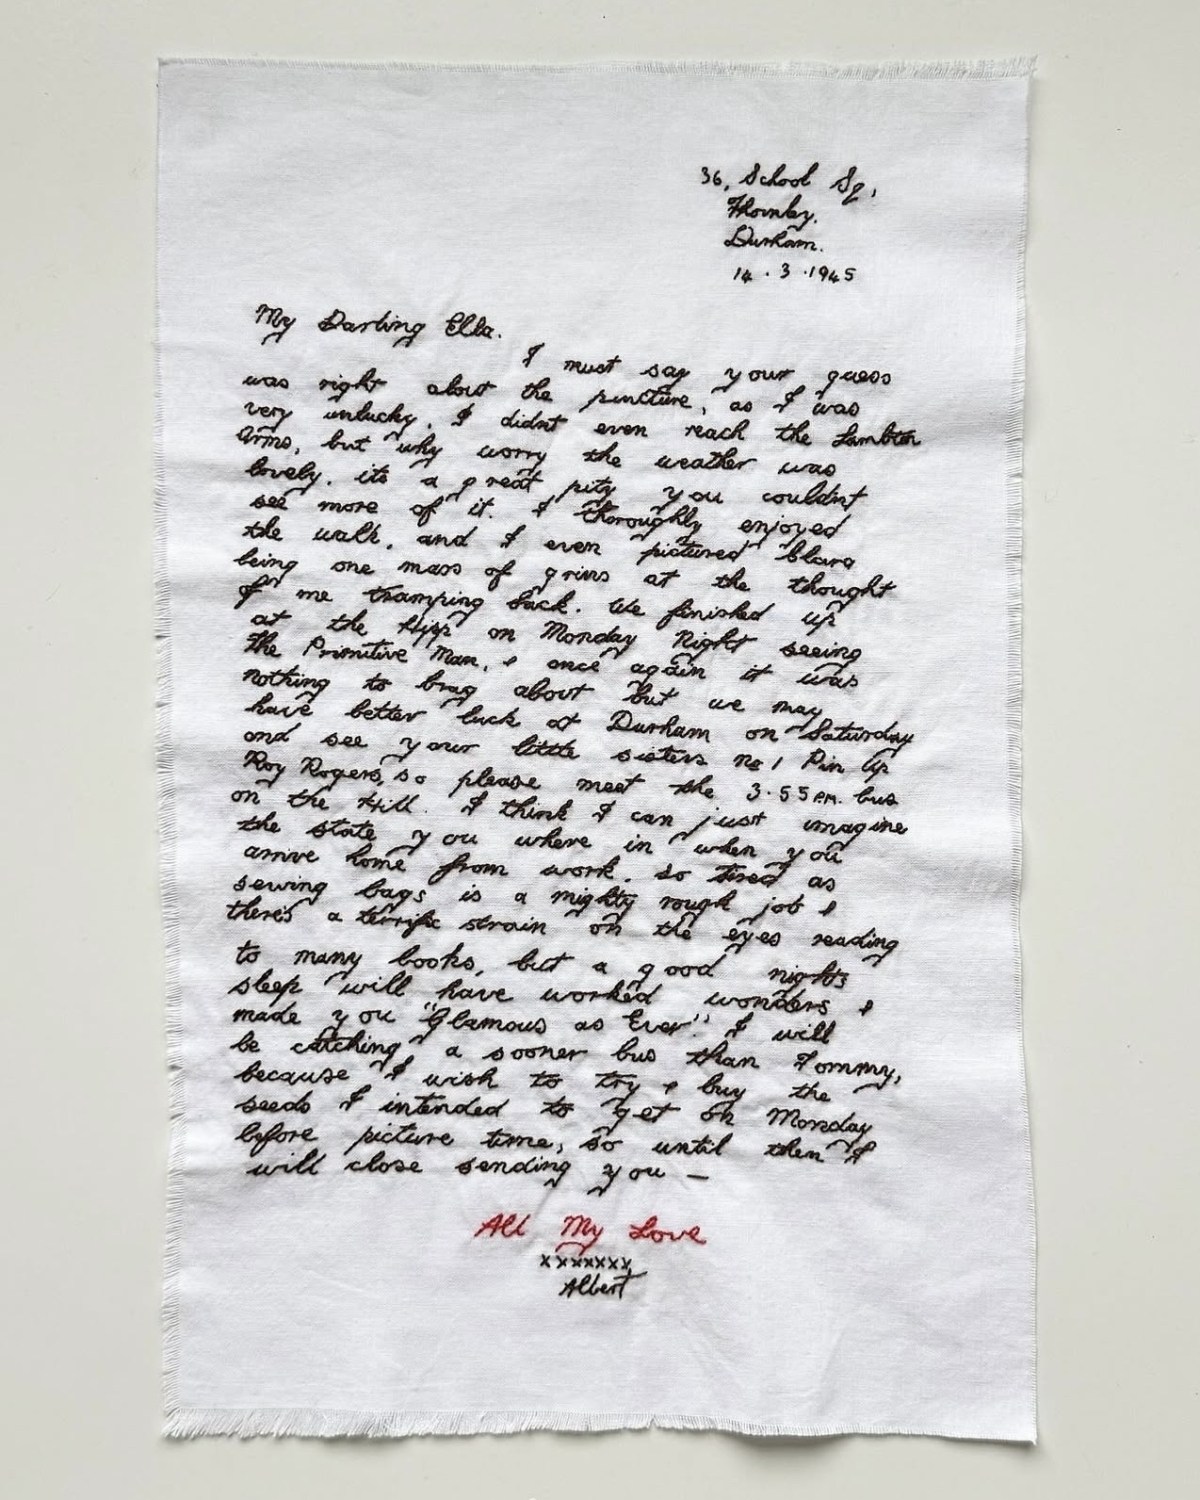 36, School Sq,
Thornley.
Durham.
14 . 3 . 1945
My Darling Ella.
I must say your guess
was right about the puncture, as I was
very unlucky. I didnt even reach the Lambton
Arms, but why worry the weather was
lovely. its a great pity you couldnt
see more of it. I thoroughly enjoyed
the walk, and I even pictured Clara
being one mass of grins at the thought
of me tramping back. We finished up
at the Hipp on Monday Night seeing
the Primitive Man, & once again it was
nothing to brag about but we may
have better luck at Durham on Saturday
and see your little sisters no 1 Pin Up
Roy Rogers, so please meet the 3.55 P.M. bus
on the Hill. I think I can just imagine
the state you where in when you
arrive home from work. so tired as
sewing bags is a mighty rough job &
there's a terrific strain on the eyes reading
to many books, but a good nights
sleep will have worked wonders &
made you "Glamous as Ever". I will
be catching a sooner bus than Tommy,
because I wish to try & buy the
seeds I intended to get on Monday
before picture time, so until then I
will close sending you —
All My Love
xxxxxxx
Albert